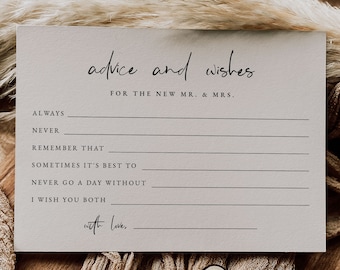 advice and wishes
FOR THE NEW MR. & MRS.
ALWAYS
NEVER
REMEMBER THAT
SOMETIMES IT'S BEST TO
NEVER GO A DAY WITHOUT
I WISH YOU BOTH
with love,